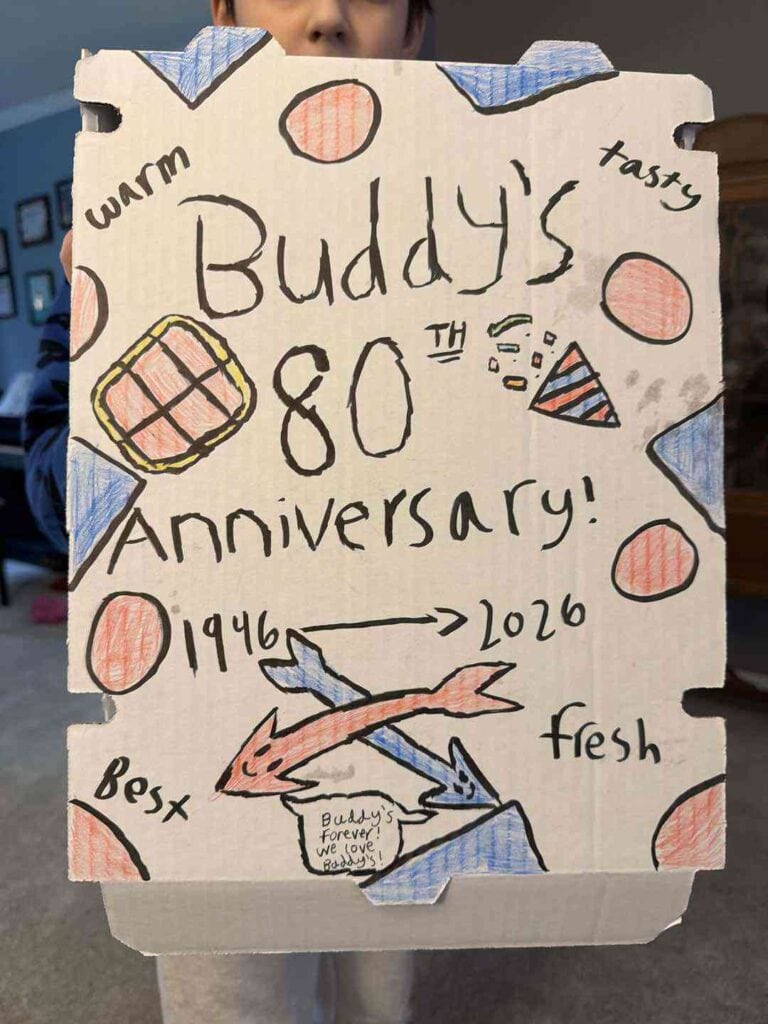 warm
tasty
Buddy's
80TH
Anniversary!
1946 → 2026
Best
fresh
Buddy's
forever!
We love
Buddy's!